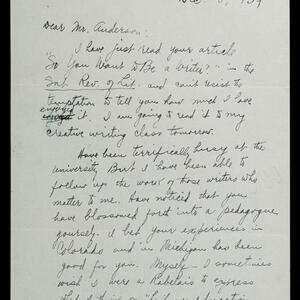 Dec. 5, 1939
Dear Mr. Anderson:
I have just read your article
"So You Want to Be a Writer?" in the
Sat. Rev. of Lit. and can't resist the
temptation to tell you how much I have
enjoyed it. I am going to read it to my
creative writing class tomorrow.
Have been terrifically busy at the
University. But I have been able to
follow up the work of those writers who
matter to me. Have noticed that you
have blossomed forth into a pedagogue
yourself. I bet your experiences in
Colorado and in Michigan has been
good for you. Myself - I sometimes
wish I were a Rabelais to express
what I think